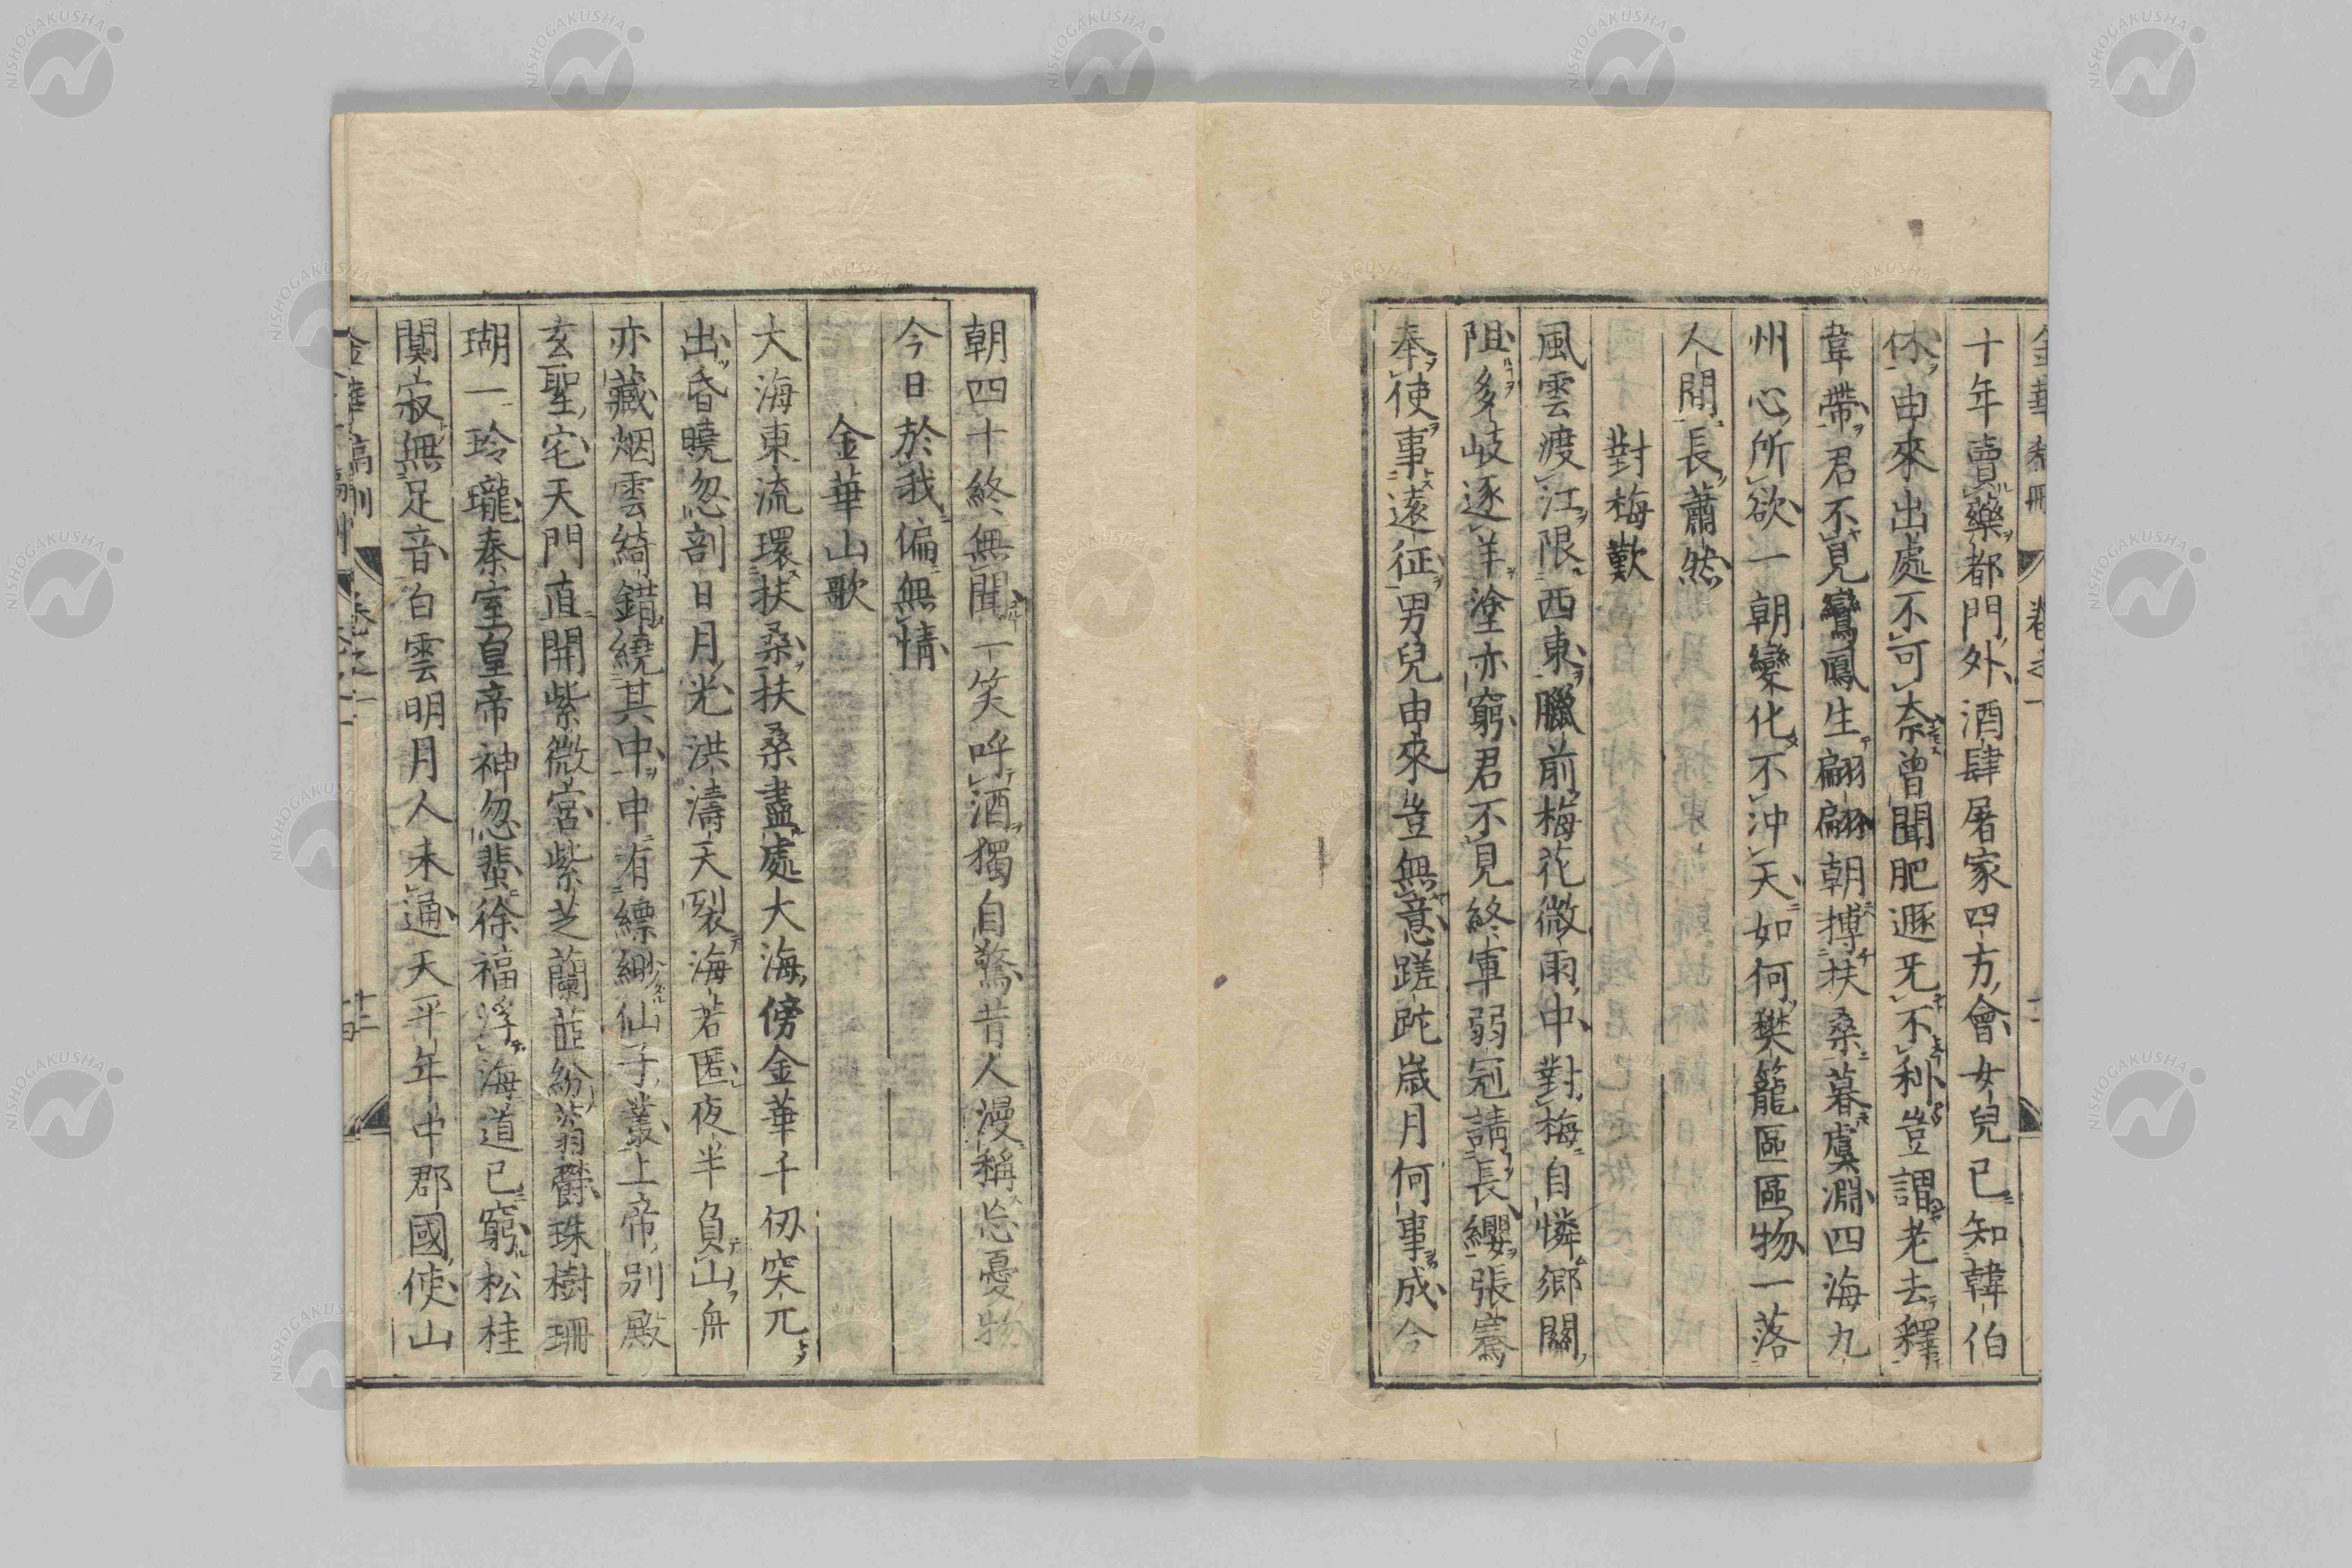 十年賣藥都門外酒肆屠家四方會女兒已知韓伯
休由來出處不可奈曾聞肥遯无不利豈謂老去釋
韋帶君不見鸞鳳生翩翩朝搏扶桑暮虞淵四海九
州心所欲一朝變化不沖天如何樊籠區區物一落
人間長蕭然
對梅歎
風雲渡江限西東臘前梅花微雨中對梅自憐鄉關
阻多岐逐羊塗亦窮君不見終軍弱冠請長纓張騫
奉使事遠征男兒由來豈無意蹉跎歲月何事成今
朝四十終無聞一笑呼酒獨自驚昔人漫稱忘憂物
今日於我偏無情
金華山歌
大海東流環扶桑扶桑盡處大海傍金華千仞突兀
出昏曉忽剖日月光洪濤天裂海若匿夜半負山舟
亦藏烟雲綺錯繞其中中有縹緲仙子叢上帝別殿
玄聖宅天門直開紫微宮紫芝蘭茝紛蓊鬱珠樹珊
瑚一玲瓏秦室皇帝神忽蜚徐福浮海道已窮松桂
闃寂無足音白雲明月人未通天平年中郡國使山
金華稿刪
卷之一